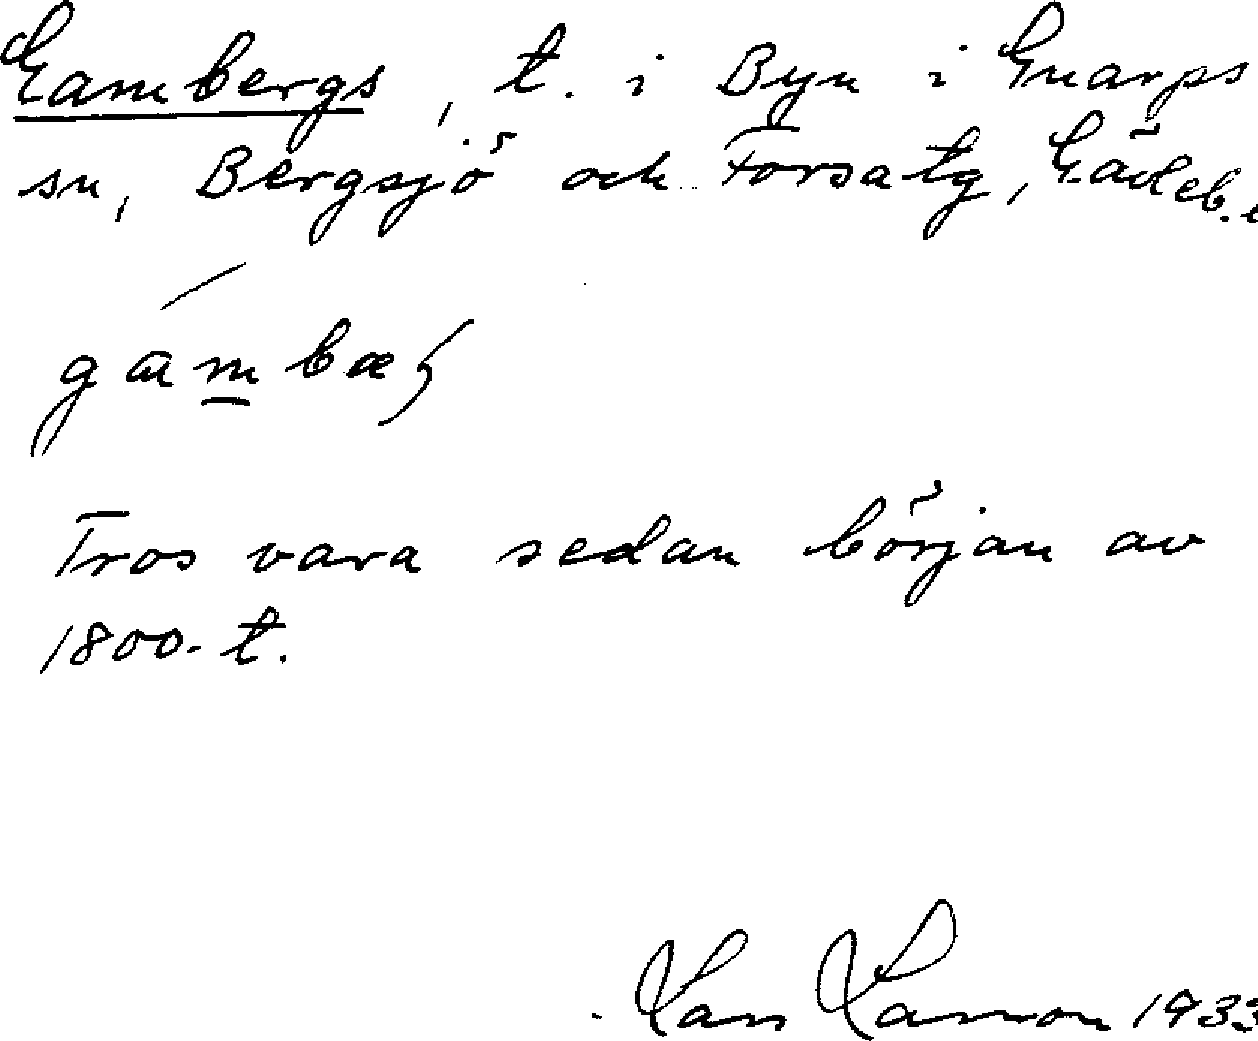 Gambergs, t. i Byn i Gnarps
sn, Bergsjö och Forsa tg, Gävleb. l
Tros vara sedan början av
1800-t.
Lars Larsson 1933